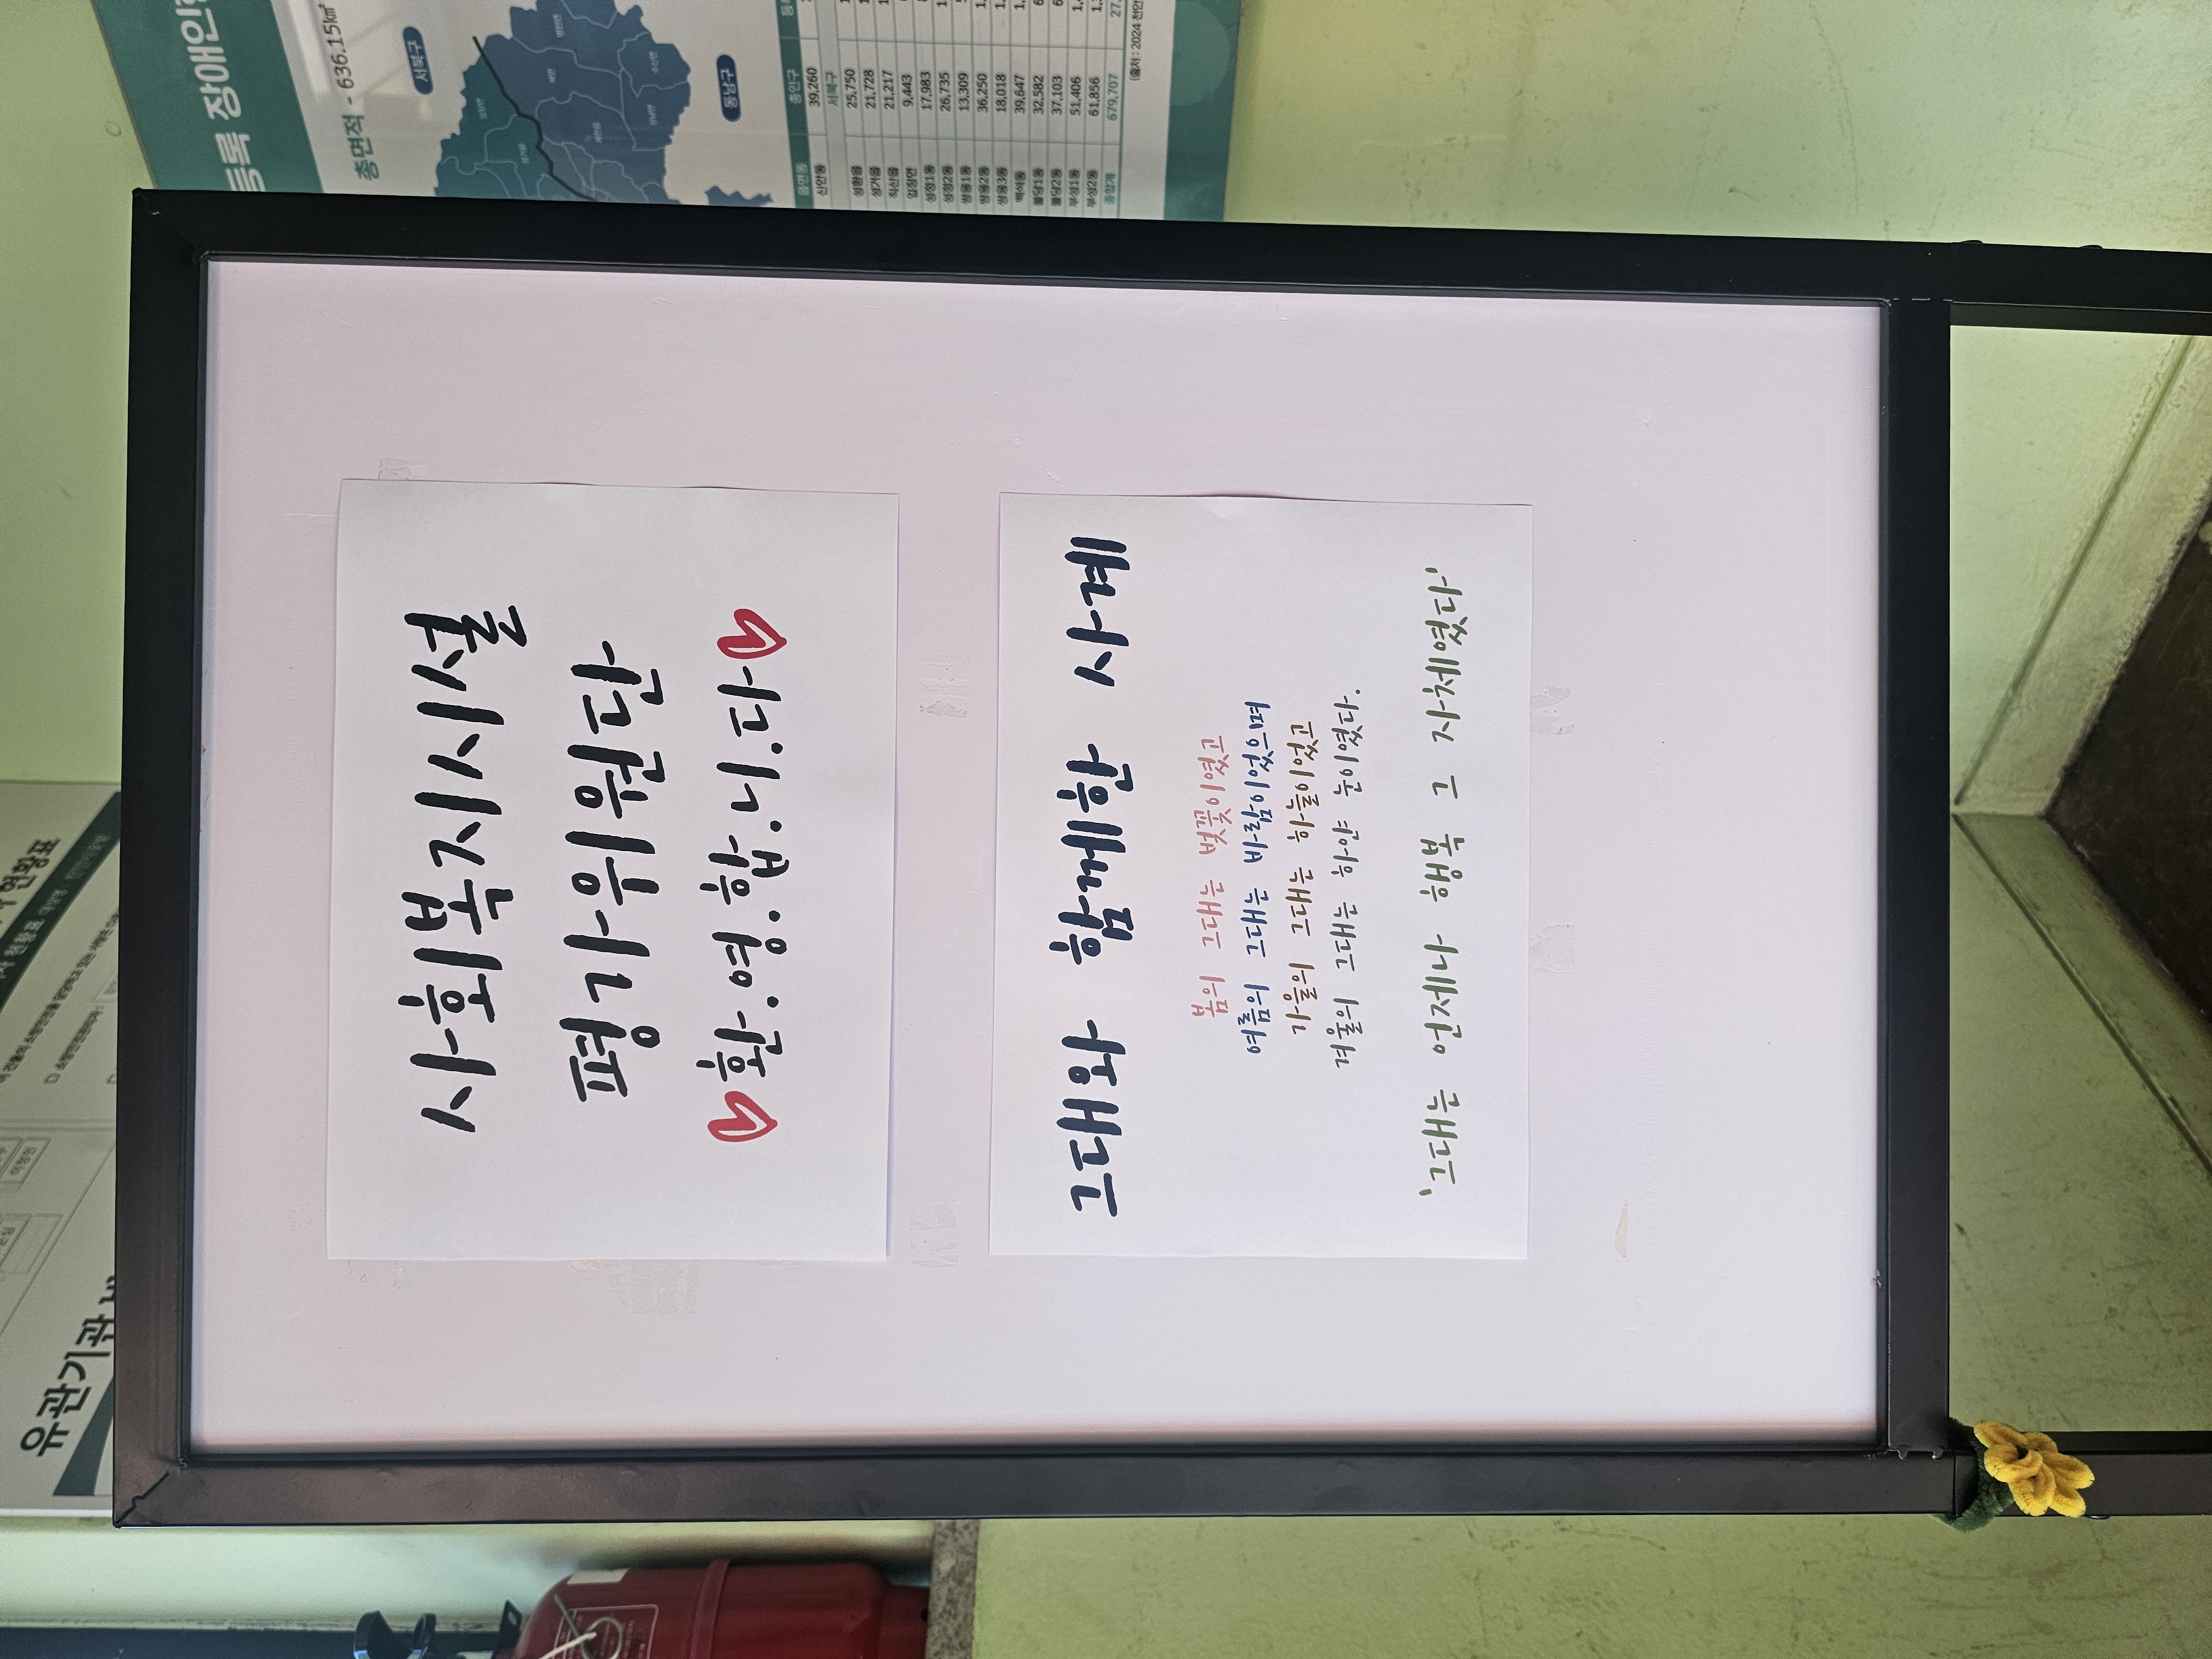 사회복지시설
평가위원단
환.영.합.니.다
그대와 함께한 사계
봄의 그대는 벚꽃이었고
여름의 그대는 바람이었으며
가을의 그대는 하늘이었고
겨울의 그대는 하얀 눈이였다.
'그대는 언제나 행복 그 자체였다'
등록 장애인
총면적 - 636.15㎢
서북구
동남구
읍면동 총인구
신안동 39,260
서북구
성환읍 25,750
성거읍 21,728
직산읍 21,217
입장면 9,443
성정1동 17,983
성정2동 26,735
쌍용1동 13,309
쌍용2동 36,250
쌍용3동 18,018
백석동 39,647
불당1동 32,582
불당2동 37,103
부성1동 51,406
부성2동 61,856
총합계 679,707
(출처 : 2024 천안
유관기관
현황표